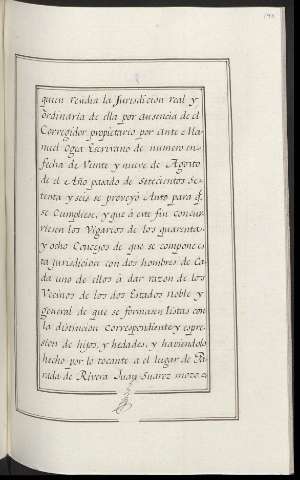 quien residia la Jurisdicion real y
ordinaria de ella por ausencia de el
Corregidor propietario por ante Ma-
nuel Oga Escrivano de numero en
fecha de Veinte y nueve de Agosto
de el Año pasado de Setecientos Se-
tenta y seis se proveyó Auto para q.e
se Cumpliese, y que à este fin Concur-
riesen los Vigarios de los quarenta
y ocho Concejos de que se compone es
ta jurisdicion con dos hombres de Ca-
da uno de ellos à dar razon de los
Vecinos de los dos Estados noble y
general de que se formasen listas con
la distincion Correspondiente y espre-
sion de hijos, y hedades, y haviendolo
hecho por lo tocante a el lugar de Pa-
rada de Rivera Juan Suarez mozo